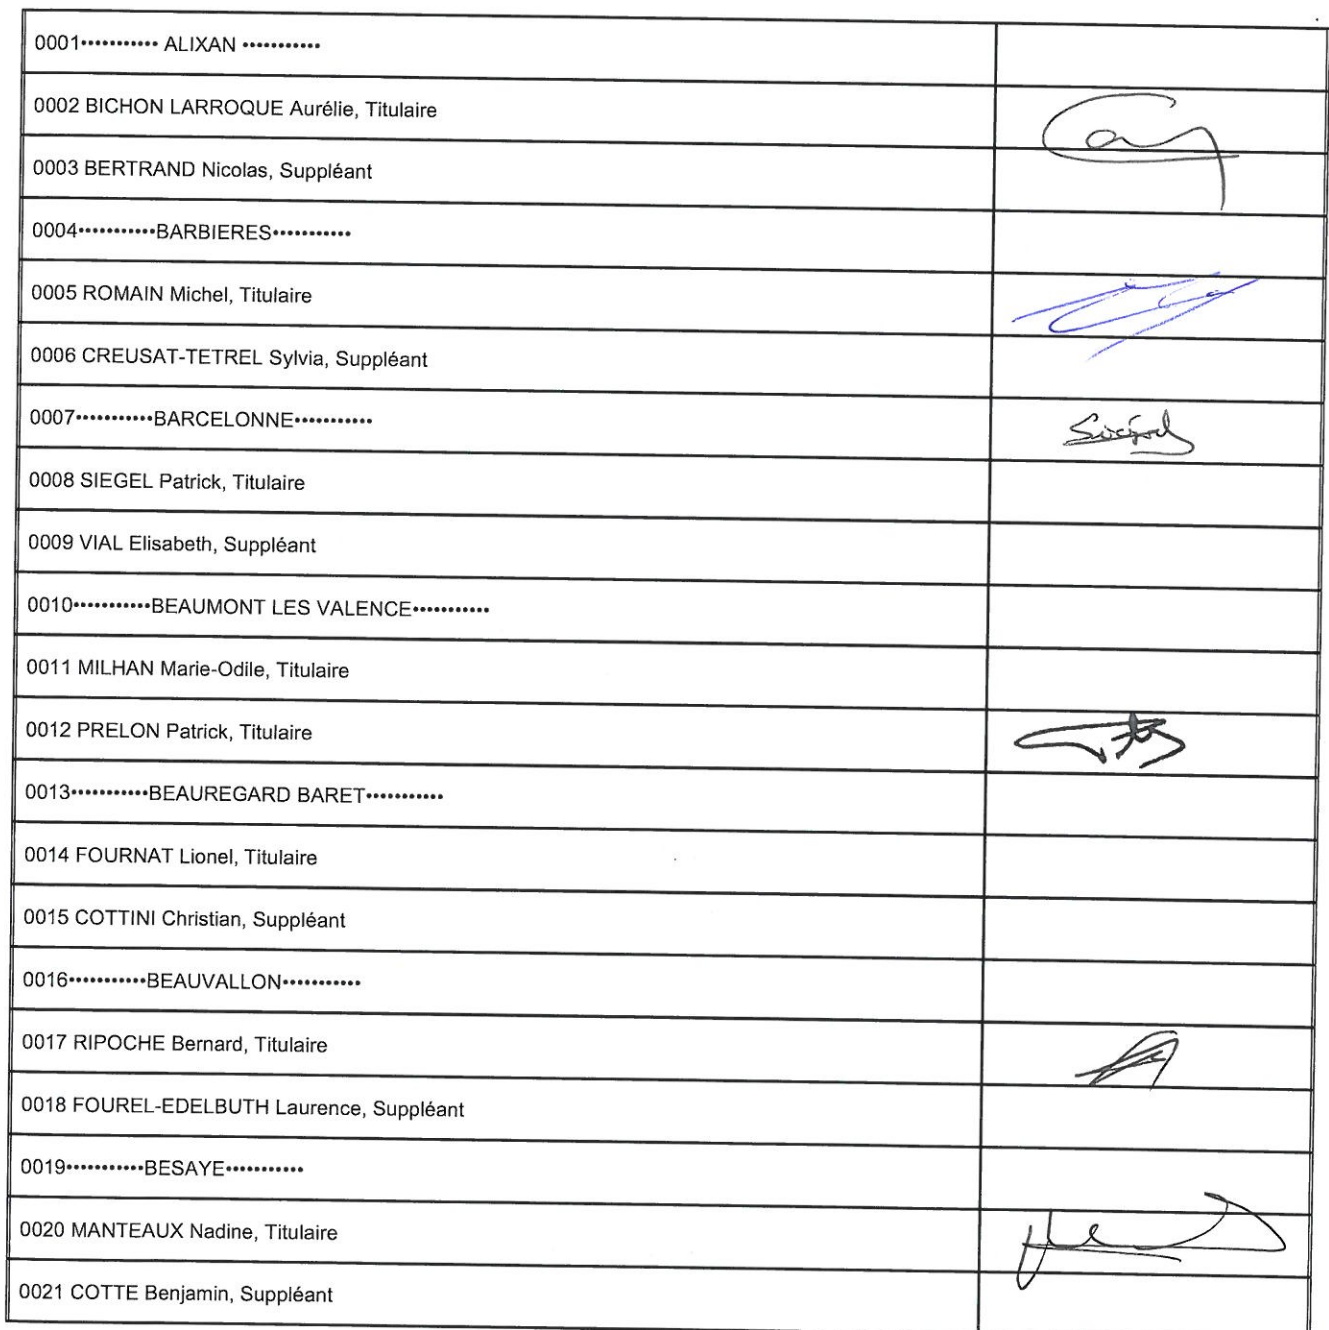 0001••••••••••• ALIXAN •••••••••••
0002 BICHON LARROQUE Aurélie, Titulaire
0003 BERTRAND Nicolas, Suppléant
0004•••••••••••BARBIERES•••••••••••
0005 ROMAIN Michel, Titulaire
0006 CREUSAT-TETREL Sylvia, Suppléant
0007•••••••••••BARCELONNE•••••••••••
0008 SIEGEL Patrick, Titulaire
0009 VIAL Elisabeth, Suppléant
0010•••••••••••BEAUMONT LES VALENCE•••••••••••
0011 MILHAN Marie-Odile, Titulaire
0012 PRELON Patrick, Titulaire
0013•••••••••••BEAUREGARD BARET•••••••••••
0014 FOURNAT Lionel, Titulaire
0015 COTTINI Christian, Suppléant
0016•••••••••••BEAUVALLON•••••••••••
0017 RIPOCHE Bernard, Titulaire
0018 FOUREL-EDELBUTH Laurence, Suppléant
0019•••••••••••BESAYE•••••••••••
0020 MANTEAUX Nadine, Titulaire
0021 COTTE Benjamin, Suppléant